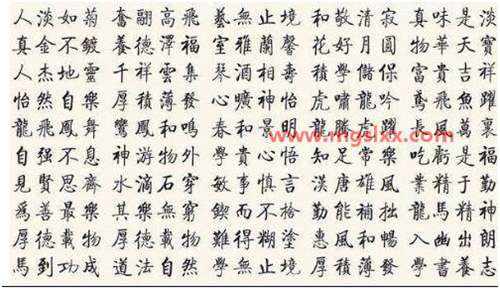 人淡如菊 奮翮高飛 藝無止境 和敬清寂 真味是淡
真金不鍍 養德澤福 室雅蘭馨 花好月圓 物華天寶
人杰地靈 千祥雲集 琴酒相壽 學儲 富貴吉祥
怡然自樂 厚積薄發 心曠神怡 虎嘯龍吟 鳶飛魚躍
龍飛鳳舞 鸞鳳和鳴 春和景明 龍騰虎躍 長風萬裏
www.mgslxx.com
自强不息 神游物外 學貴心悟 知足常樂 吃虧是福
見賢思齊 水滴石穿 敏事慎言 漢唐雄風 業精于勤
爲善最樂 其樂無窮 而不捨 勤能補拙 龍馬精神
厚德載物 厚德載物 難得糊塗 惠風和暢 入幽出朗
馬到功成 道法自然 學無止境 厚積薄發 學書養志